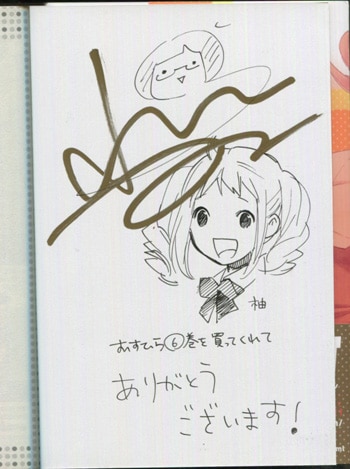 柚
むすひら⑥巻を買ってくれて
ありがとう
ございます!